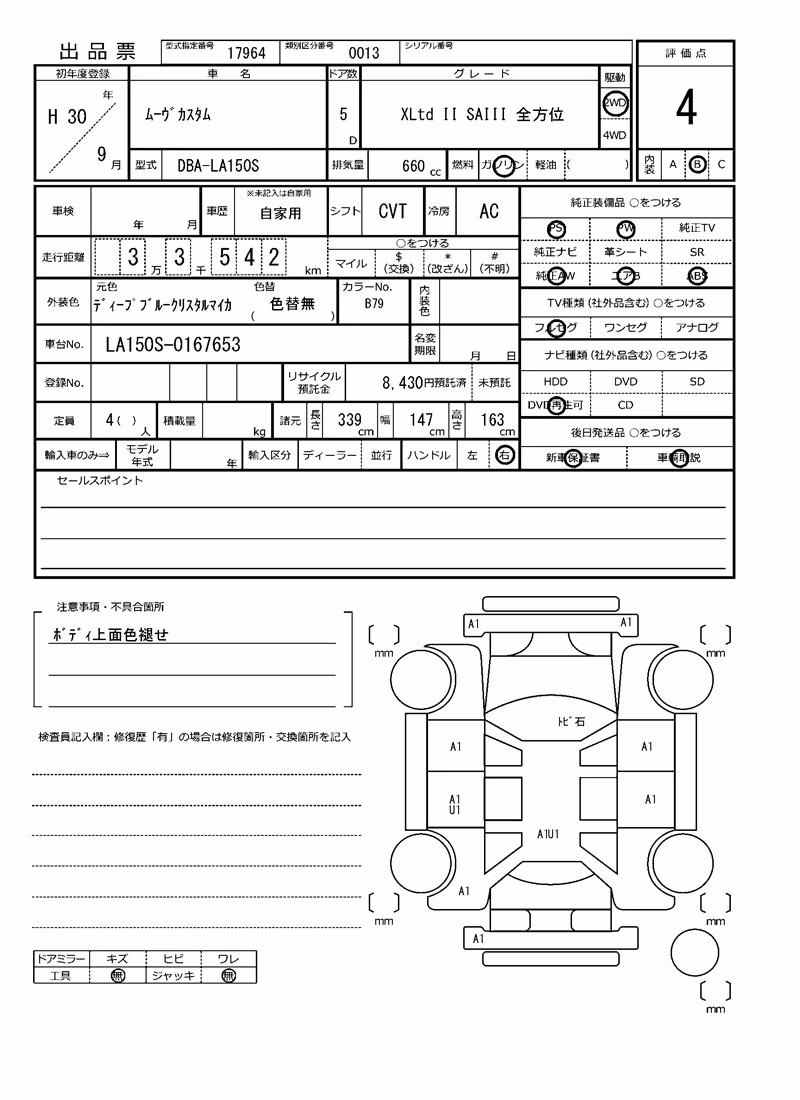 出品票 型式指定番号 17964 類別区分番号 0013 シリアル番号
評価点
4
内装 A B C
初年度登録 車 名 ドア数 グレード 駆動
H 30 年 9 月
ムーヴカスタム
5 D
XLtd II SAIII 全方位
2WD
4WD
型式 DBA-LA150S 排気量 660 cc 燃料 ガソリン 軽油 ( )
車検 年 月 車歴 ※未記入は自家用 自家用 シフト CVT 冷房 AC
走行距離 3 万 3 千 5 4 2 km
○をつける
マイル $ (交換) * (改ざん) # (不明)
外装色 元色 ディープブルークリスタルマイカ 色替 ( 色替無 ) カラーNo. B79 内装色
車台No. LA150S-0167653 名変期限 月 日
登録No. リサイクル預託金 8,430円預託済 未預託
定員 4( ) 人 積載量 kg 諸元 長さ 339 cm 幅 147 cm 高さ 163 cm
輸入車のみ⇒ モデル年式 年 輸入区分 ディーラー 並行 ハンドル 左 右
純正装備品 ○をつける
PS PW 純正TV
純正ナビ 革シート SR
純正AW エアB ABS
TV種類(社外品含む)○をつける
フルセグ ワンセグ アナログ
ナビ種類(社外品含む)○をつける
HDD DVD SD
DVD再生可 CD
後日発送品 ○をつける
新車保証書 車輌取説
セールスポイント
注意事項・不具合箇所
ボディ上面色褪せ
検査員記入欄:修復歴「有」の場合は修復箇所・交換箇所を記入
ドアミラー キズ ヒビ ワレ
工具 無 ジャッキ 無
A1 A1
mm mm
トビ石
A1 A1
A1
U1
A1
A1U1
A1
mm mm
A1
mm